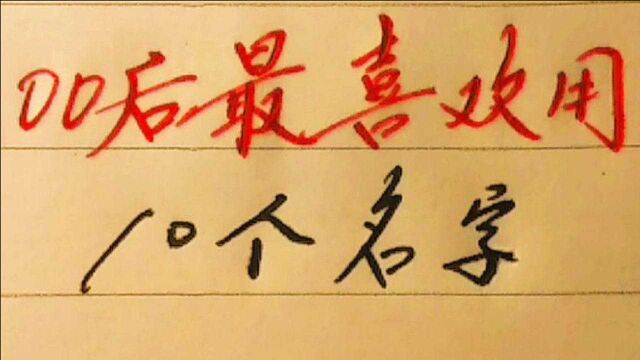 00后最喜欢用
10个名字